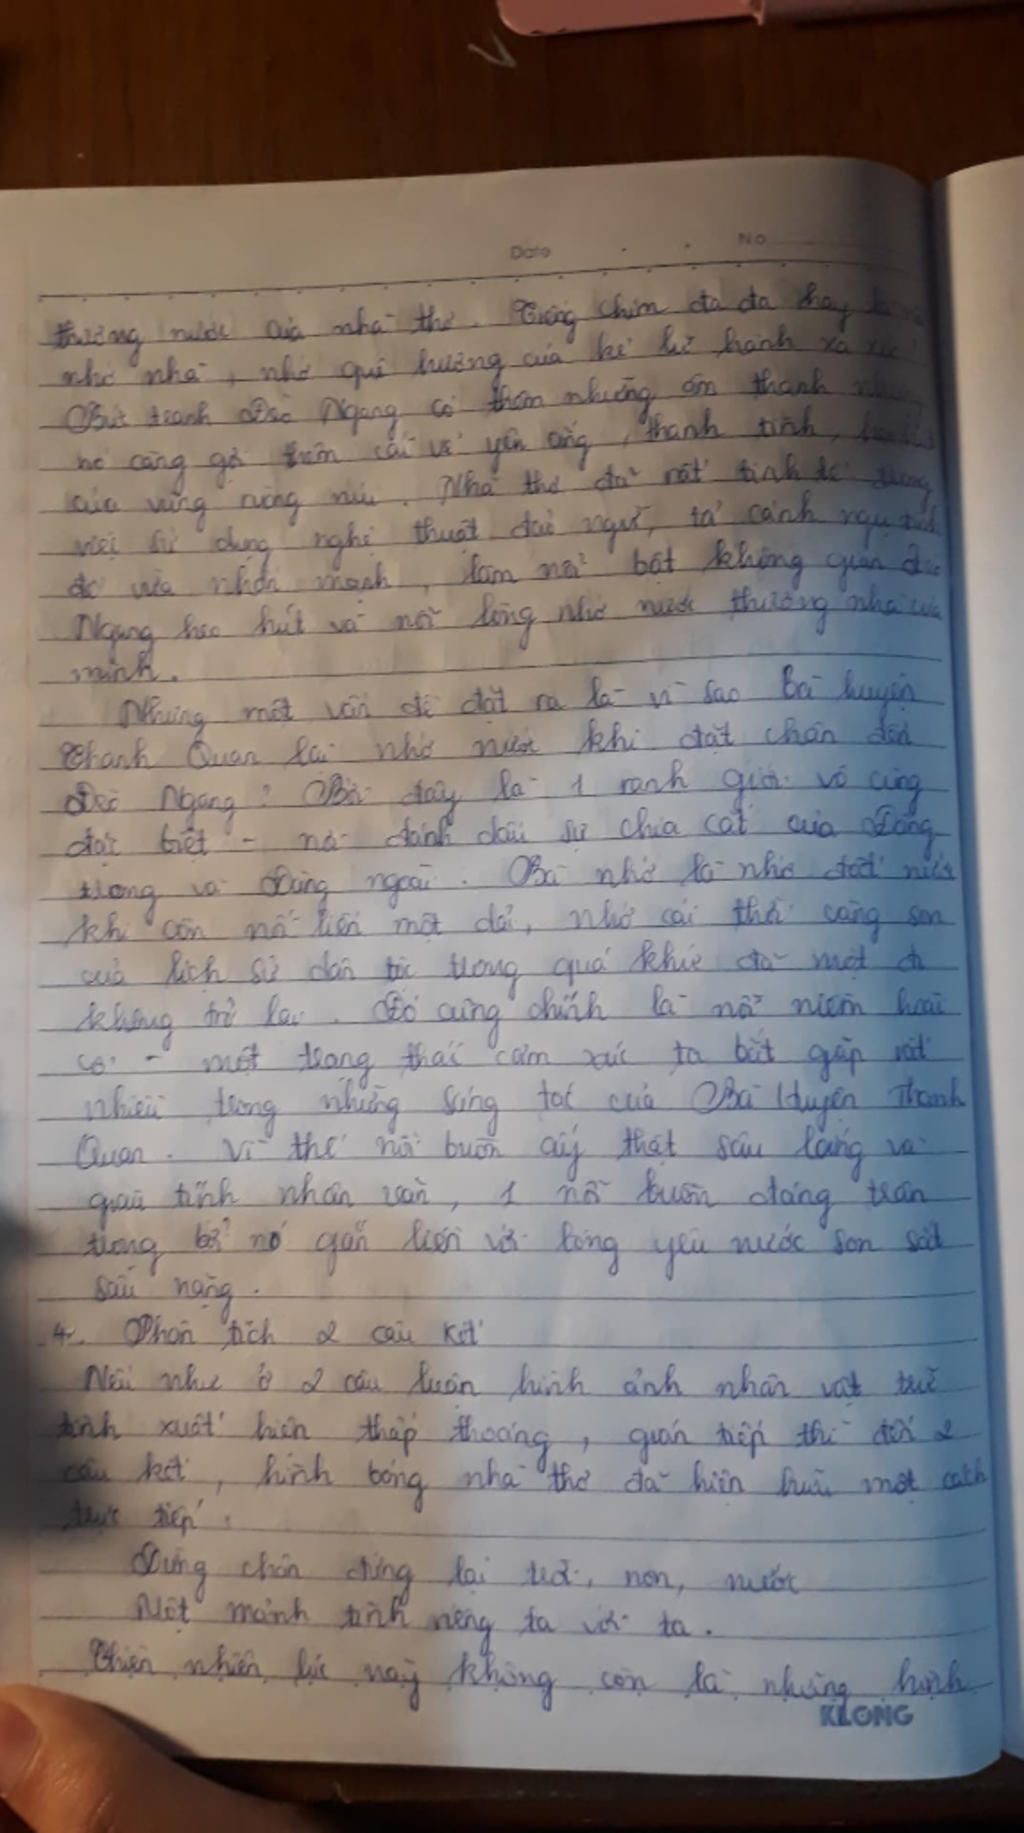 Date No
thương nước của nhà thơ. Tiếng chim đa đa hay là
nhớ nhà, nhớ quê hương của kẻ lữ hành xa xứ
Bức tranh Đèo Ngang có thêm những âm thanh nhưng
nó càng gợi thêm cái vẻ yên ắng, thanh tĩnh,
của vùng rừng núi. Nhà thơ đã rất tinh tế trong
việc sử dụng nghệ thuật đảo ngữ, tả cảnh ngụ tình
để vừa nhấn mạnh, làm nổi bật không gian đèo
Ngang heo hút và nỗi lòng nhớ nước thương nhà của
mình.
Nhưng một vấn đề đặt ra là vì sao Bà huyện
Thanh Quan lại nhớ nước khi đặt chân đến
Đèo Ngang? Bởi đây là 1 ranh giới vô cùng
đặc biệt - nó đánh dấu sự chia cắt của Đàng
trong và Đàng ngoài. Bà nhớ là nhớ đất nước
khi còn nối liền một dải, nhớ cái thời vàng son
của lịch sử dân tộc trong quá khứ đã một đi
không trở lại. Đó cũng chính là nỗi niềm hoài
cổ - một trạng thái cảm xúc ta bắt gặp rất
nhiều trong những sáng tác của Bà Huyện Thanh
Quan. Vì thế nỗi buồn ấy thật sâu lắng và
giàu tính nhân văn, 1 nỗi buồn đáng trân
trọng bởi nó gắn liền với lòng yêu nước son sắt
sâu nặng.
4. Phân tích 2 câu kết
Nếu như ở 2 câu luận hình ảnh nhân vật trữ
tình xuất hiện thấp thoáng, gián tiếp thì đến 2
câu kết, hình bóng nhà thơ đã hiện hữu một cách
trực tiếp:
Dừng chân đứng lại trời, non, nước
Một mảnh tình riêng ta với ta.
Thiên nhiên lúc này không còn là những hình
KLONG